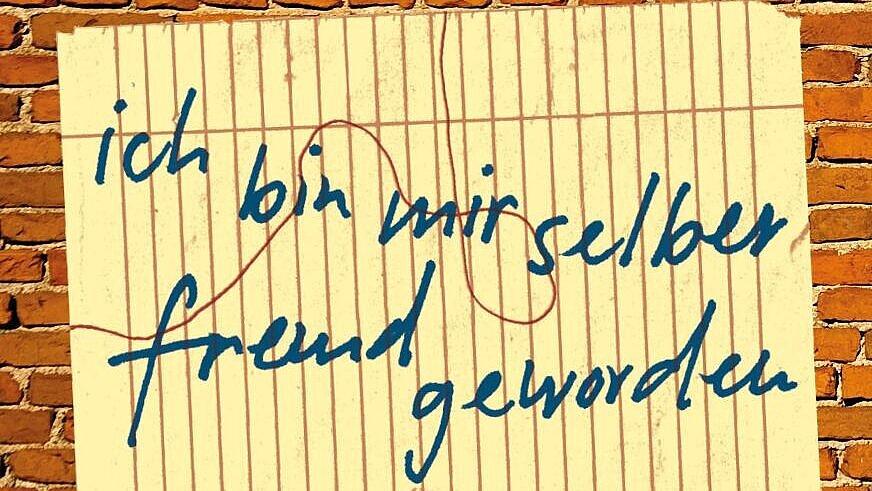 ich bin mir selber
fremd geworden